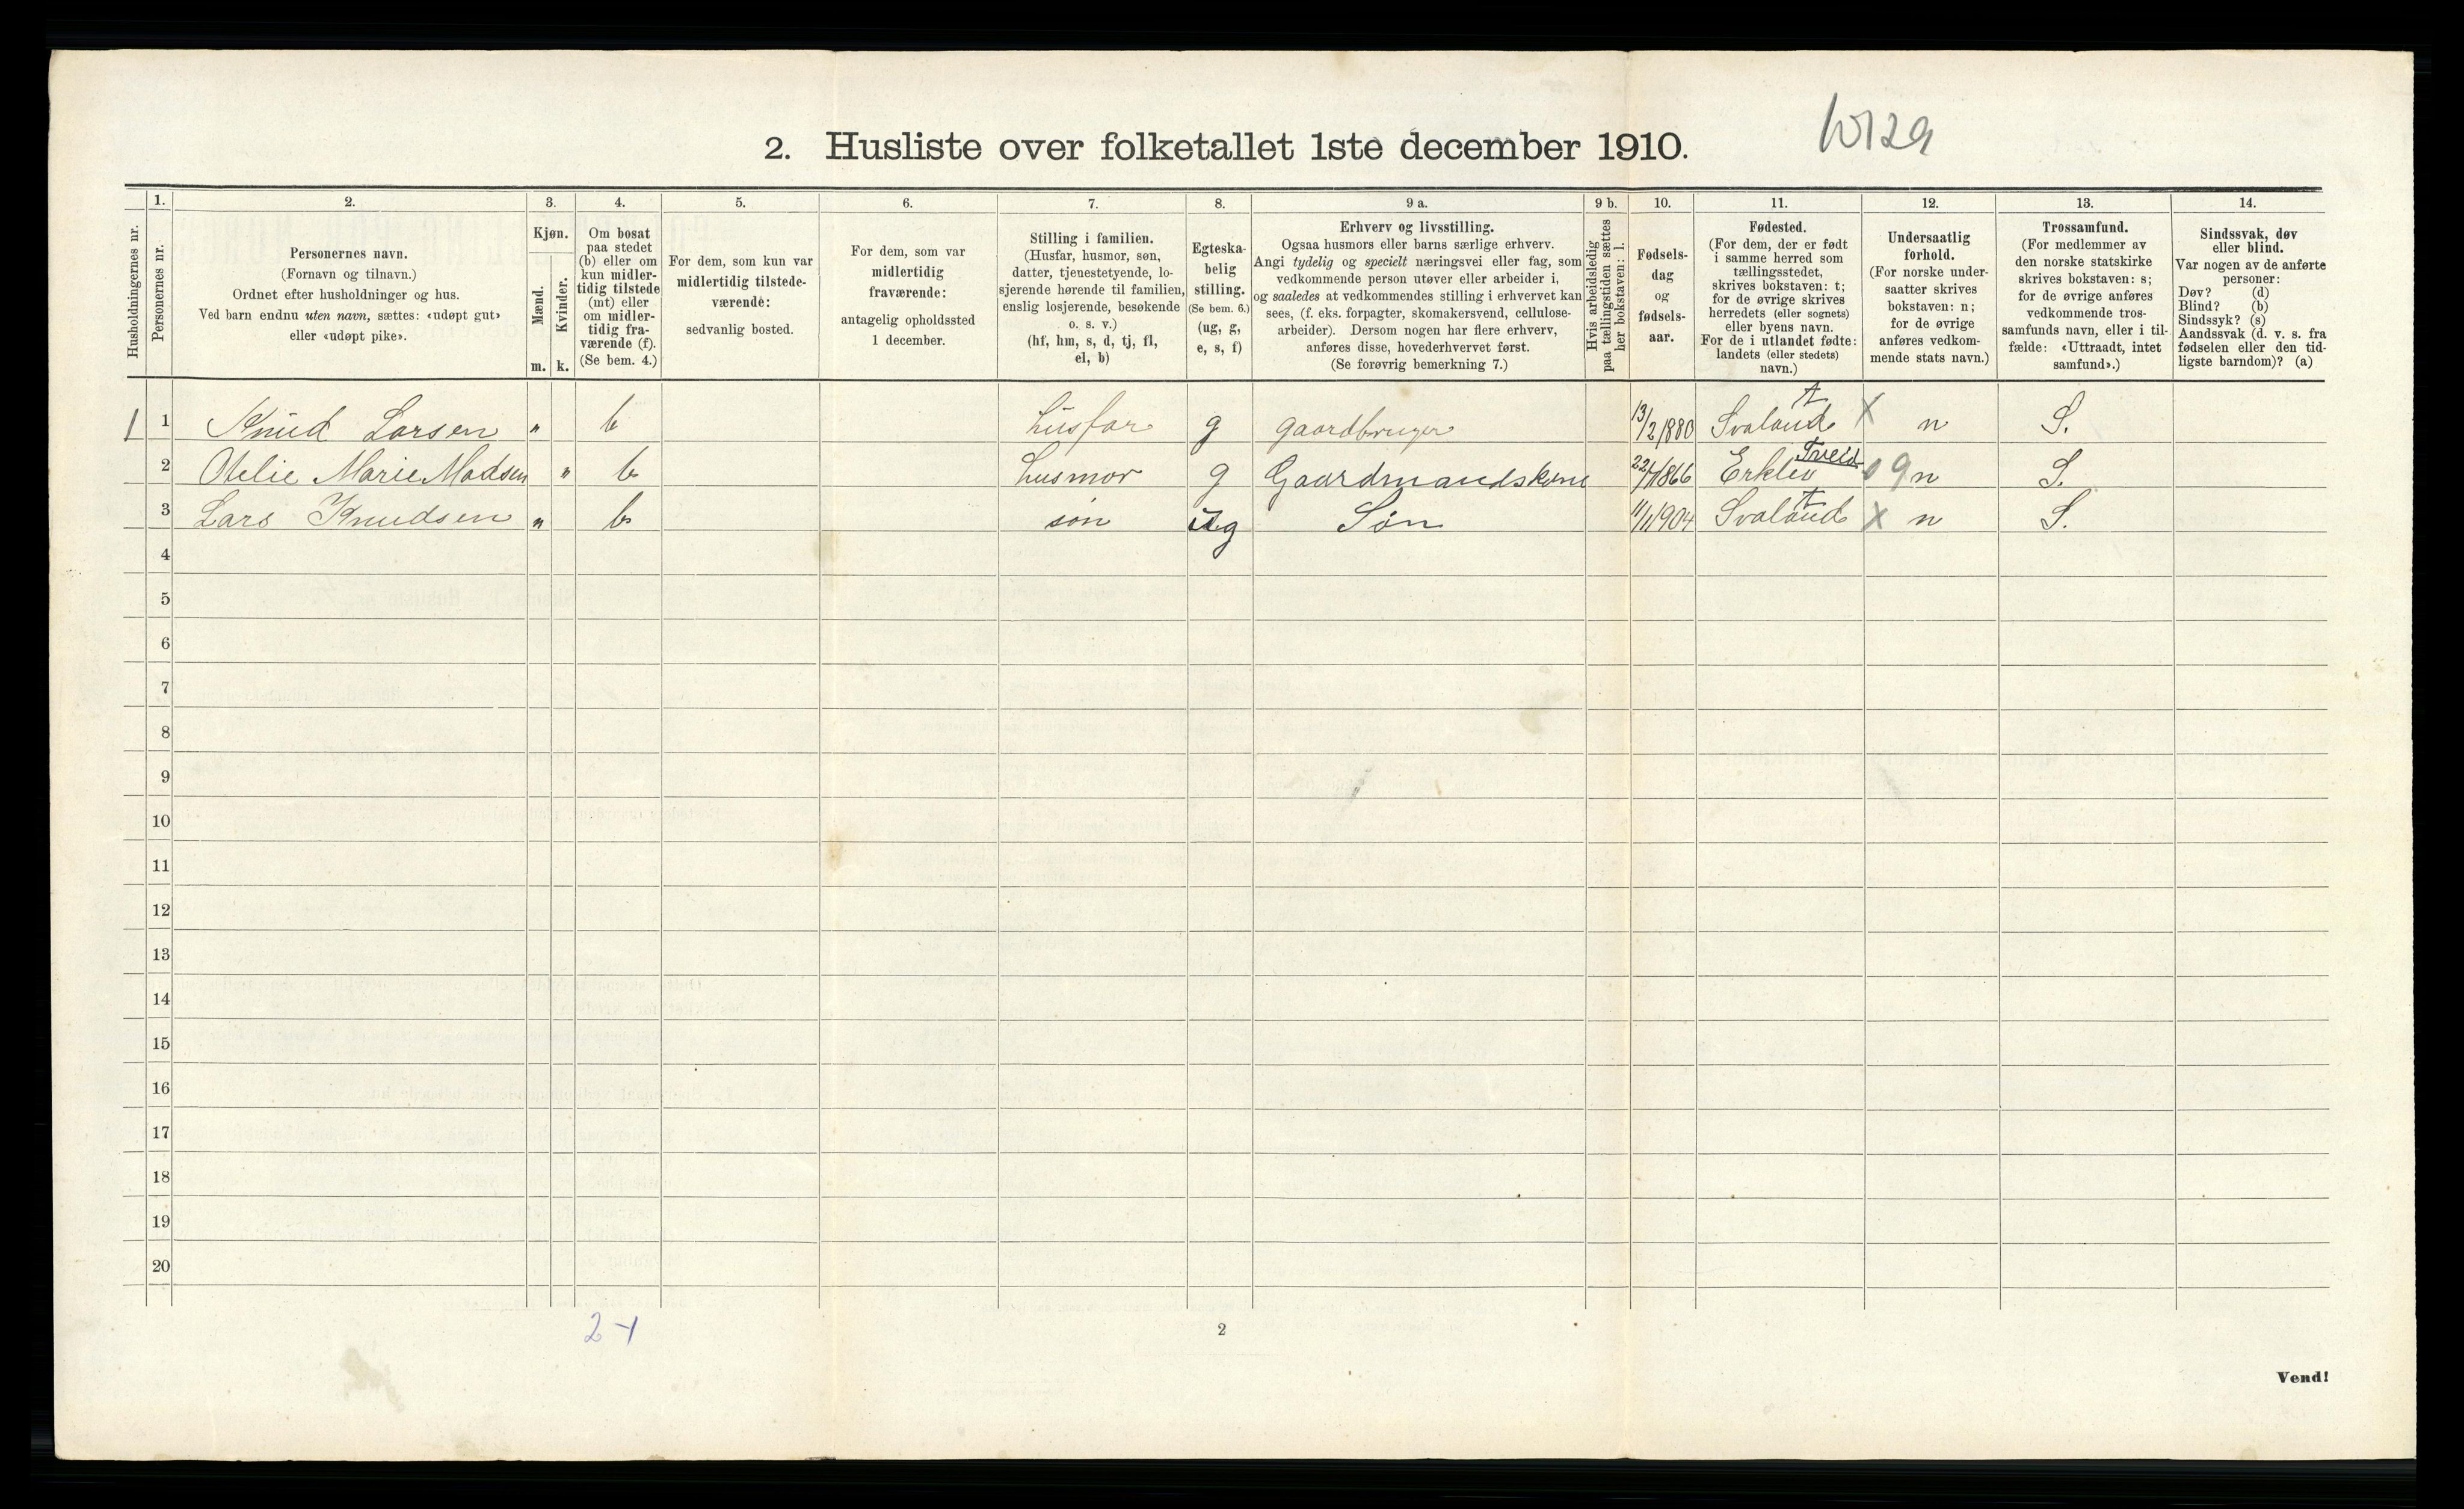 2. Husliste over folketallet 1ste december 1910.
1. 2. 3. 4. 5. 6. 7. 8. 9 a. 9 b. 10. 11. 12. 13. 14.
Husholdningernes nr.
Personernes nr.
Personernes navn.
(Fornavn og tilnavn.)
Ordnet efter husholdninger og hus.
Ved barn endnu uten navn, sættes: «udøpt gut»
eller «udøpt pike».
Kjøn.
Mænd.
Kvinder.
m. k.
Om bosat
paa stedet
(b) eller om
kun midler-
tidig tilstede
(mt) eller
om midler-
tidig fra-
værende (f).
(Se bem. 4.)
For dem, som kun var
midlertidig tilstede-
værende:
sedvanlig bosted.
For dem, som var
midlertidig
fraværende:
antagelig opholdssted
1 december.
Stilling i familien.
(Husfar, husmor, søn,
datter, tjenestetyende, lo-
sjerende hørende til familien,
enslig losjerende, besøkende
o. s. v.)
(hf, hm, s, d, tj, fl,
el, b)
Egteska-
belig
stilling.
(Se bem. 6.)
(ug, g,
e, s, f)
Erhverv og livsstilling.
Ogsaa husmors eller barns særlige erhverv.
Angi tydelig og specielt næringsvei eller fag, som
vedkommende person utøver eller arbeider i,
og saaledes at vedkommendes stilling i erhvervet kan
sees, (f. eks. forpagter, skomakersvend, cellulose-
arbeider). Dersom nogen har flere erhverv,
anføres disse, hovederhvervet først.
(Se forøvrig bemerkning 7.)
Hvis arbeidsledig
paa tællingstiden sættes
her bokstaven: l.
Fødsels-
dag
og
fødsels-
aar.
Fødested.
(For dem, der er født
i samme herred som
tællingsstedet,
skrives bokstaven: t;
for de øvrige skrives
herredets (eller sognets)
eller byens navn.
For de i utlandet fødte:
landets (eller stedets)
navn.)
Undersaatlig
forhold.
(For norske under-
saatter skrives
bokstaven: n;
for de øvrige
anføres vedkom-
mende stats navn.)
Trossamfund.
(For medlemmer av
den norske statskirke
skrives bokstaven: s;
for de øvrige anføres
vedkommende tros-
samfunds navn, eller i til-
fælde: «Uttraadt, intet
samfund».)
Sindssvak, døv
eller blind.
Var nogen av de anførte
personer:
Døv? (d)
Blind? (b)
Sindssyk? (s)
Aandssvak (d. v. s. fra
fødselen eller den tid-
ligste barndom)? (a)
t
1 1 Knud Larsen " b husfar g gaardbruger 13/2 1880 Svaland X n S.
Tveid
2 Otelie Marie Madsen " b husmor g Gaardmandskone 22/7 1866 Erklev 09 n S.
t
3 Lars Knudsen " b søn ug Søn 11/11 904 Svaland X n S.
4
5
6
7
8
9
10
11
12
13
14
15
16
17
18
19
20
2-1
2
Vend!